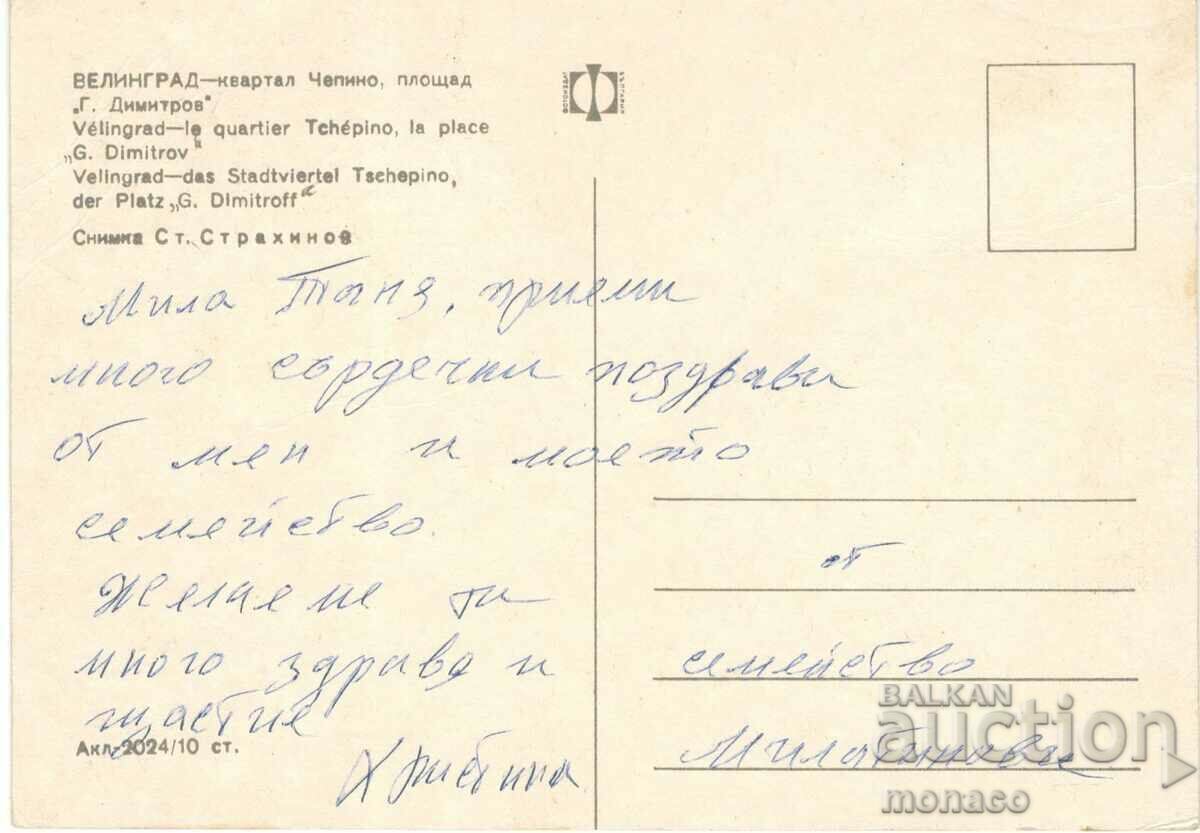 ВЕЛИНГРАД—квартал Чепино, площад
„Г. Димитров"
Vélingrad—le quartier Tchépino, la place
„G. Dimitrov"
Velingrad—das Stadtviertel Tschepino,
der Platz „G. Dimitroff"
Снимка Ст. Страхинов
ФОТОИЗДАТ
БЪЛГАРИЯ
Мила Таня, приеми
много сърдечни поздрави
от мен и моето
семейство.
Желаеме ти
много здраве и
щастие
Християна
Акл-2024/10 ст.
от
семейство
BALKAN
auction
monaco